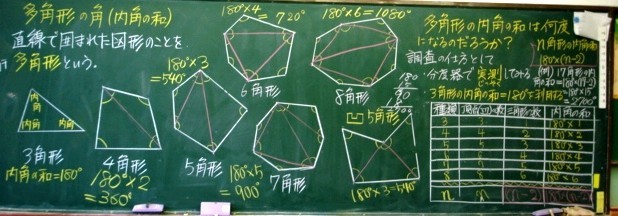 多角形の角(内角の和)
直線で囲まれた図形のことを
多角形という。
内角
内角
内角
3角形
内角の和=180°
4角形
180°×2
=360°
180°×3
=540°
5角形
180°×4
=720°
6角形
180°×5
=900°
7角形
180°×6=1080°
8角形
5角形
180°×3=540°
多角形の内角の和は何度
になるのだろうか?
調査の仕方として
・分度器で実測してみる
・3角形の内角の和=180°を利用する
n角形の内角の和
180×(n-2)
(例)17角形の内
角の和=180×(17-2)
=180×15
=2700°
種類
三角形の数
内角の和
4 4 2 180×2
5 5 3 180×3
6 6 4 180×4
8 8 6 180×6
n n n-2